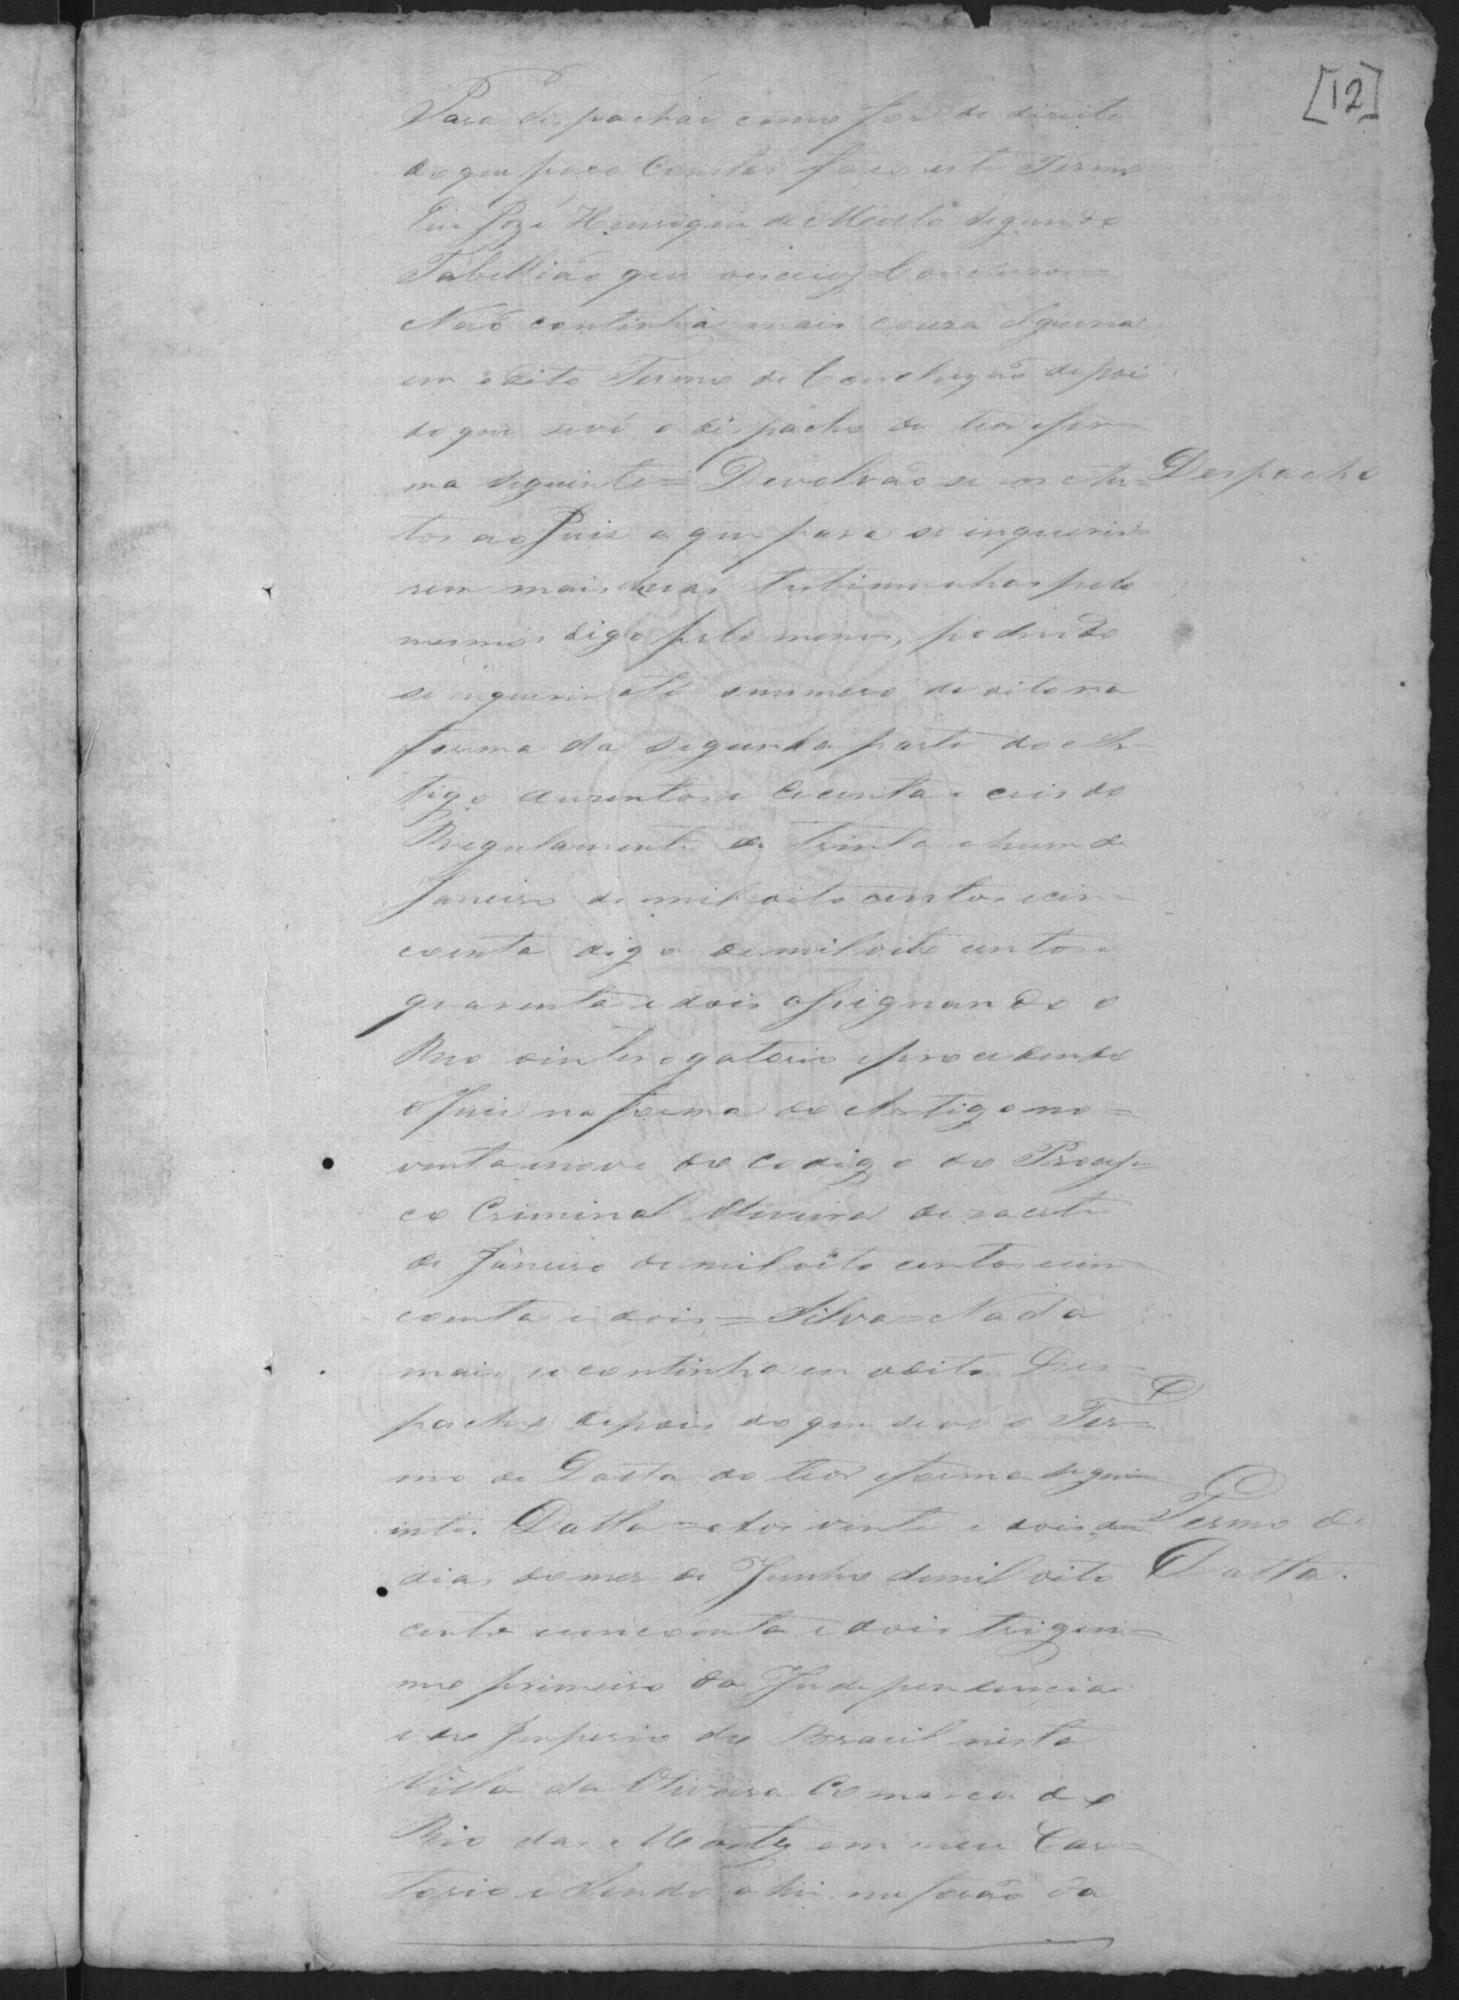 [12]
Para despachar como for de direito
do que para Constar faço este Termo
Eu José Henrique de Mello segundo
Tabellião que escrevy Conclusos =
Não continha mais couza alguma
em o dito Termo de Concluzão depois
do que se vê o dispacho do teor e for
ma seguinte = Devolvão se os Au=
Despacho
tos ao Juiz a quo para se inquerir
rem mais duas testimunhas pelo
mesmo digo pelo menos, podendo
se inquerir até o numero de oito na
forma da segunda parte do Ar=
tigo duzentos e cecenta e ceis do
Regulamento de trinta e hum de
Janeiro de mil oito centos e cin=
coenta digo de mil oito centos e
quarenta e dois assignando o
Reo o interogatorio e procedendo
o Juiz na forma do Artigo no=
venta e nove do Codigo do Proces=
co Criminal Oliveira de
de Janeiro de mil oito centos cin
coenta e dois = Silva = Nada
mais se continha em o dito Des=
pacho depois do que se vê o Ter=
mo de Datta do teor e forma sigui
inte. Datta = Aos vinte e dois
Termo de
Datta.
dias do mez de Junho de mil oito
cento cincoenta e dois trigeci=
mo primeiro da Independencia
e do Imperio do Brasil nesta
Villa da Oliveira Comarca do
Rio das Mortes em meu Car=
torio e sendo ahi me forão da